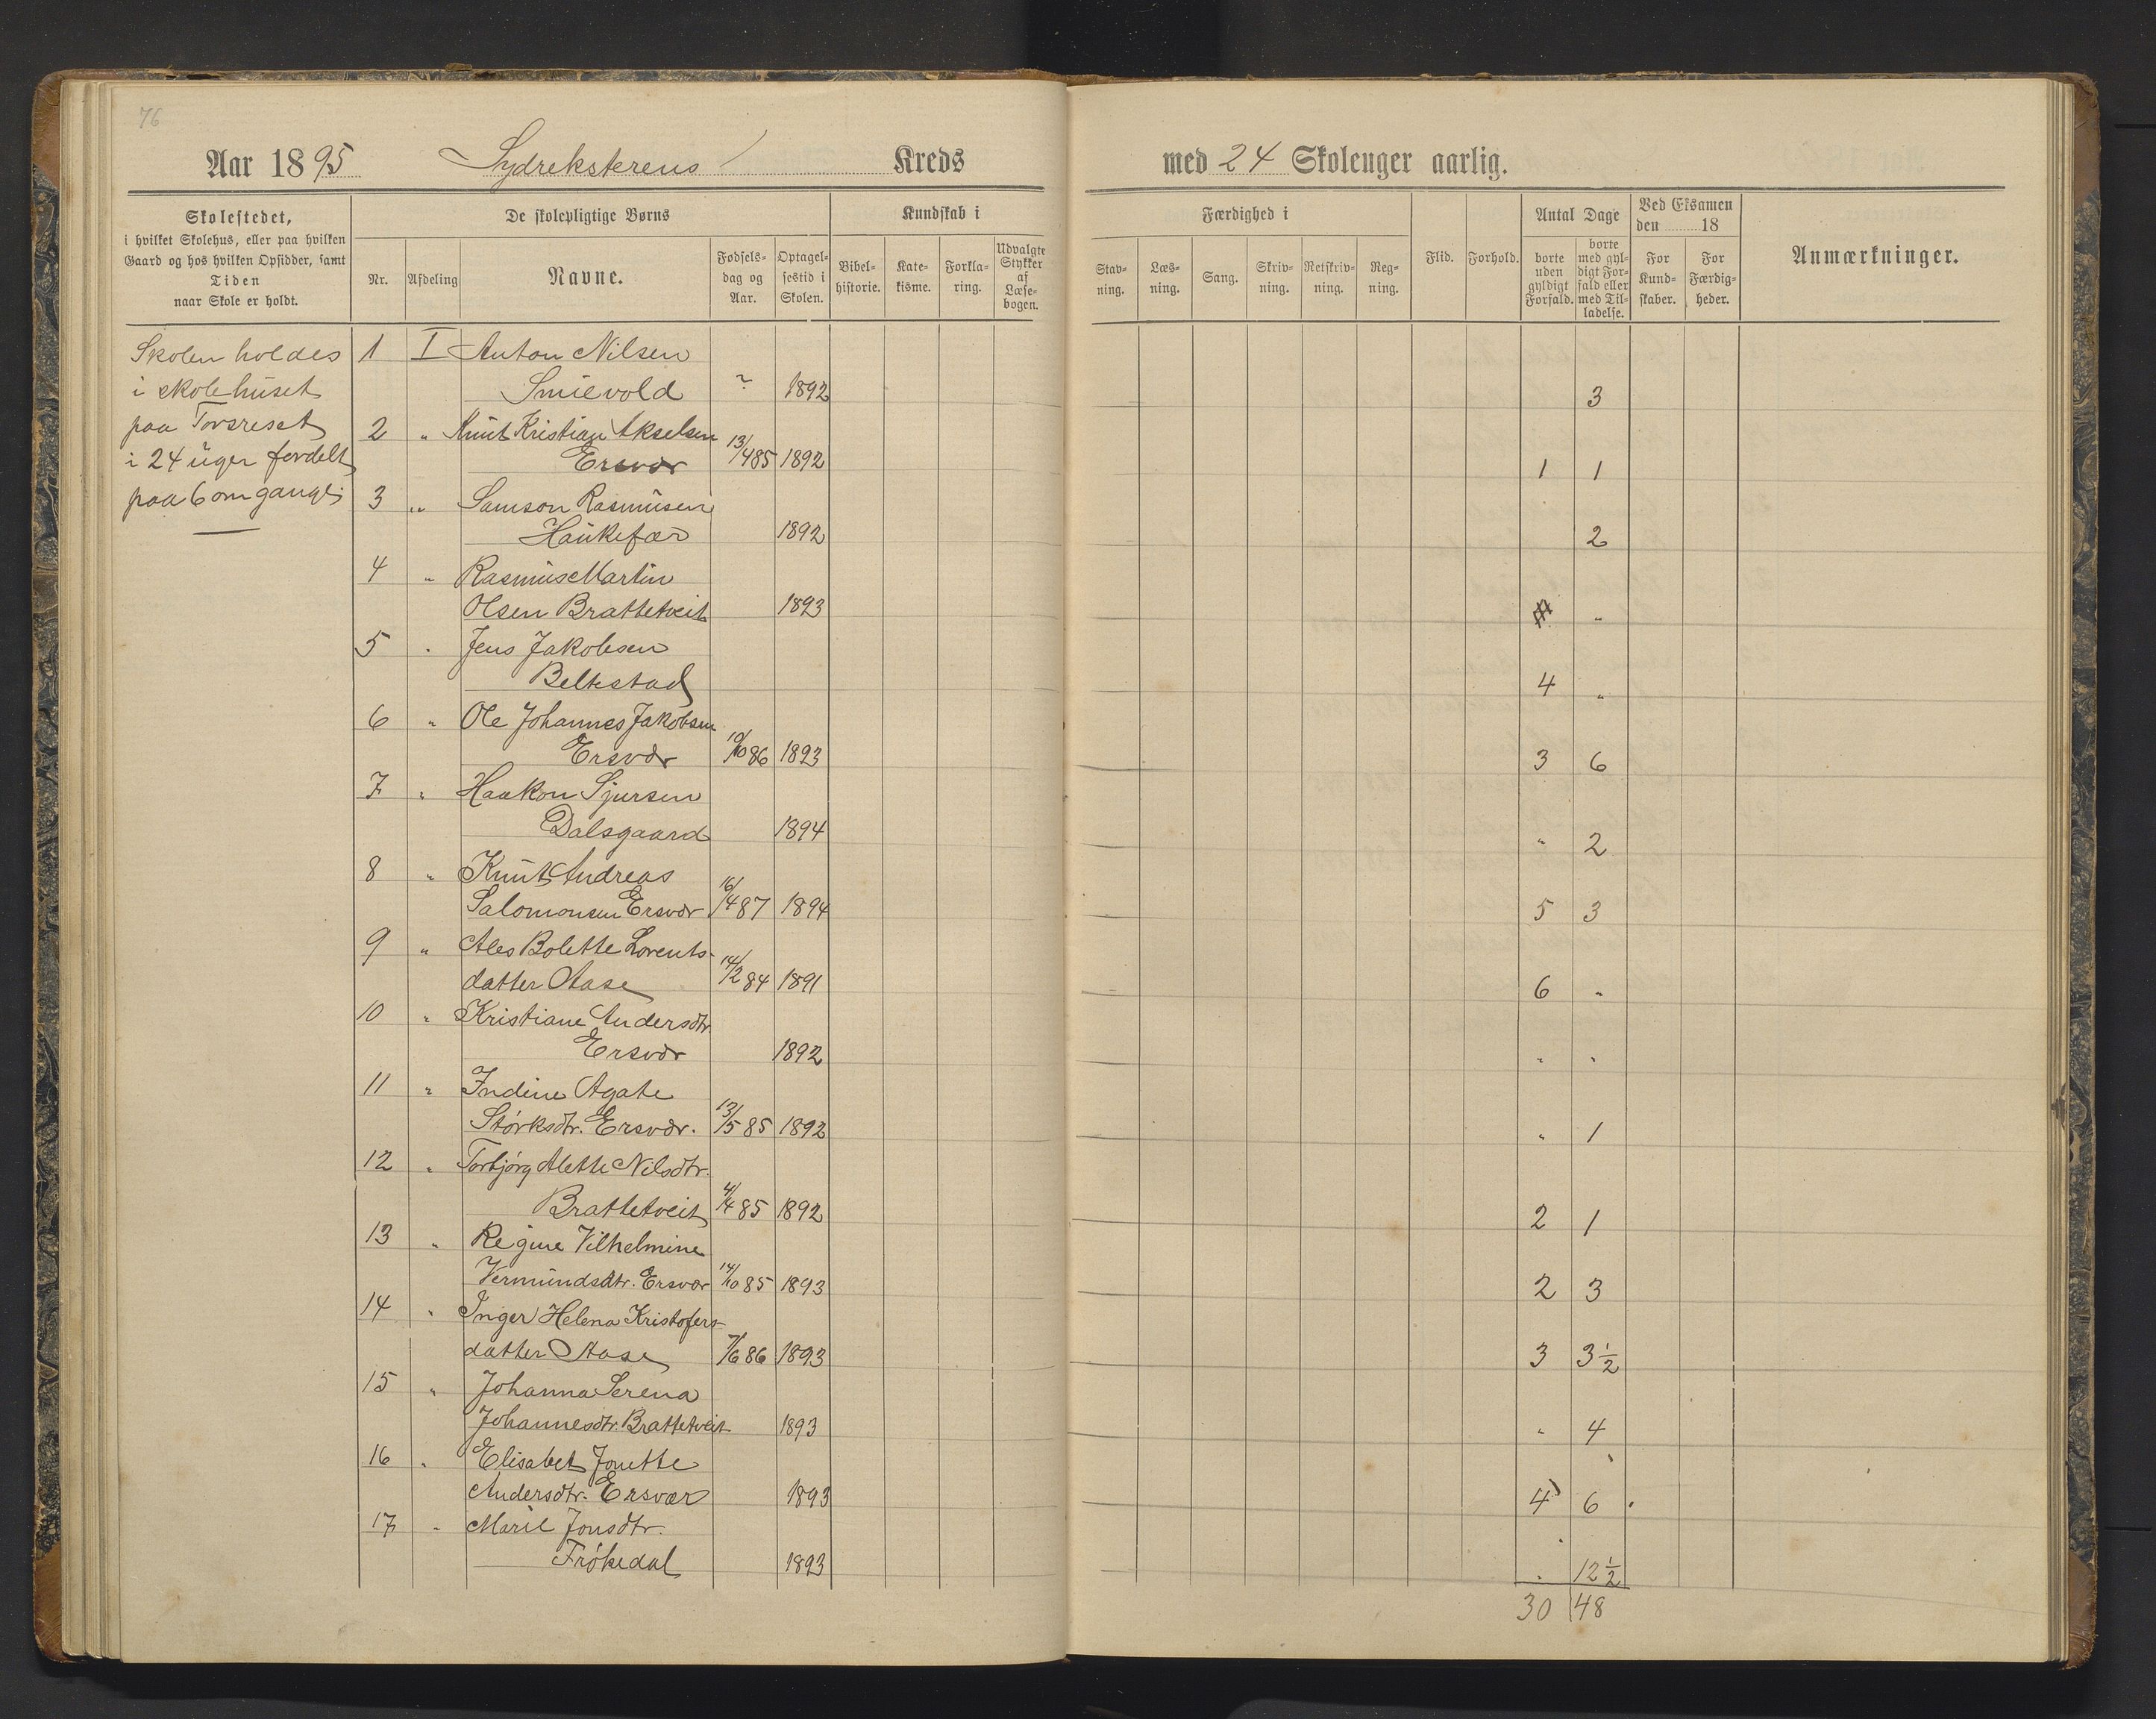 76
Aar 1895 Sydreksterens Kreds
med 24 Skoleuger aarlig.
Skolestedet,
i hvilket Skolehus, eller paa hvilken
Gaard og hos hvilken Opsidder, samt
Tiden
naar Skole er holdt.
De skolepligtige Børns
Nr.
Afdeling
Navne.
Fødsels-
dag og
Aar.
Optagel-
sestid i
Skolen.
Kundskab i
Bibel-
historie.
Kate-
kisme.
Forkla-
ring.
Udvalgte
Stykker
af
Læse-
bogen.
Færdighed i
Stav-
ning.
Læs-
ning.
Sang.
Skriv-
ning.
Retskriv-
ning.
Reg-
ning.
Flid.
Forhold.
Antal Dage
borte
uden
gyldigt
Forfald.
borte
med gyl-
digt For-
fald eller
med Til-
ladelse.
Ved Eksamen
den 18
For
Kund-
skaber.
For
Færdig-
heder.
Anmærkninger.
Skolen holdes
i skolehuset
paa
i 24 uger fordelt
paa 6 omgange
1 I Anton Nilsen
Smievold ? 1892 3
2 " Knut Kristian Akselsen
Ersvær 13/4 85 1892 1 1
3 " Samson Rasmusen
Haukefær 1892 2
4 " Rasmus Martin
Olsen Brattetveit 1893 "
5 " Jens Jakobsen
Beltestad 4 "
6 " Ole Johannes Jakobsen
Ersvær 10/10 86 1893 3 6
7 " Haakon Sjursen
Dalsgaard 1894 " 2
8 " Knut Andreas
Salomonsen Ersvær 16/4 87 1894 5 3
9 " Ales Bolette Lorents-
datter Aase 14/2 84 1891 6 "
10 " Kristiane Andersdtr.
Ersvær 1892 " "
11 " Indine Agate
Størksdtr. Ersvær. 13/5 85 1892 " 1
12 " Torbjørg Alette Nilsdtr.
Brattetveit 4/4 85 1892 2 1
13 " Regine Vilhelmine
Vermundsdtr. Ersvær 14/10 85 1893 2 3
14 " Inger Helena Kristofers-
datter Aase 7/6 86 1893 3 3 1/2
15 " Johanna Serena
Johannesdtr. Brattetveit 1893 " 4
16 " Elisabet Jonette
Andersdtr. Ersvær 1893 4 6
17 " Marie Jonsdtr.
Frökedal 1893 " 12 1/2
30 48